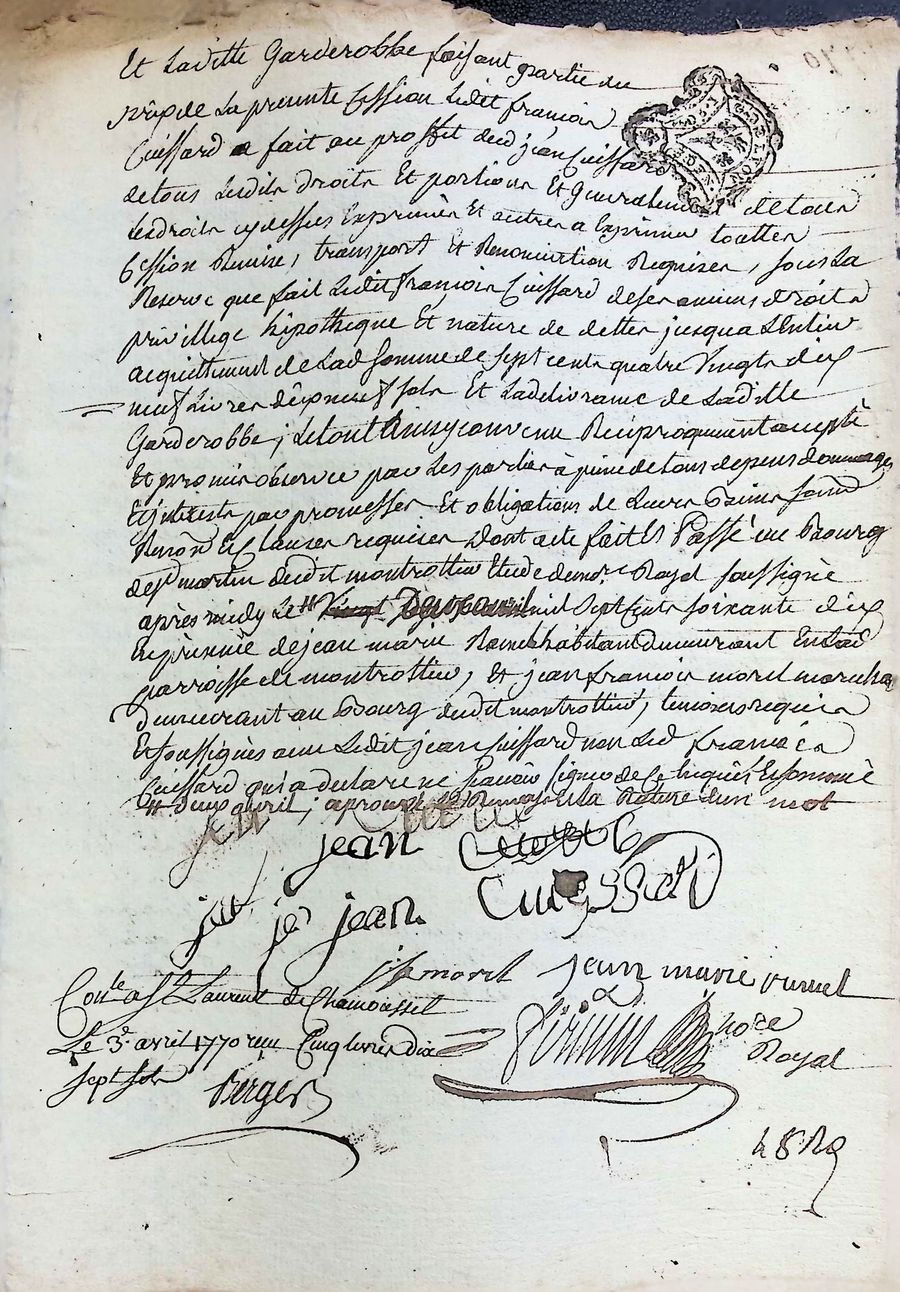 Et Laditte Garderobbe faisant partie du
prix de La presente Cession Ledit francois
Cuissard a fait au proffit dud jean Cuissard
de tous Lesdits droits Et portions Et generalement de tous
les droits cydessus Exprimés Et autres a Exprimer touttes
Cession Remise, transport Et Renonciation Requises, sous La
Reserve que fait Ledit francois Cuissard de ses anciens droits
privillege hipotheque Et nature de dettes jusqua Lentier
acquittement de Lad somme de sept cents quatre vingts dix
neuf Livres dixneuf sols Et La delivrance de Laditte
Garderobbe; Le tout Ainsy convenu Reciproquement accepté
Et promis observer par Les parties à peine de tous depens dommages
Et interests par promesses Et obligations de Leurs Biens
Renon Et Clauses requises Dont acte fait Et Passé au Bourg
de St martin dudit montrottier Etude du no.re Royal soussigné
après midy Le mil Sept Cents soixante dix
En presence de jean marie habitant demeurant En lad
parroisse de montrottier, Et jean francois morel marechal
demeurant au Bourg dudit montrottier, temoins requis
Et soussignés avec Ledit jean Cuissard non Led francois
Cuissard qui a declaré ne sçavoir signer de ce Enquis Et sommé
deux avril; approuvé La Rature d'un mot
jean
jean Cuissard
j f morel jean marie
Con.le a St Laurent de Chamousset
Le 3.e avril 1770 reçu Cinq livres dix
sept sols
Berger
no.re
Royal